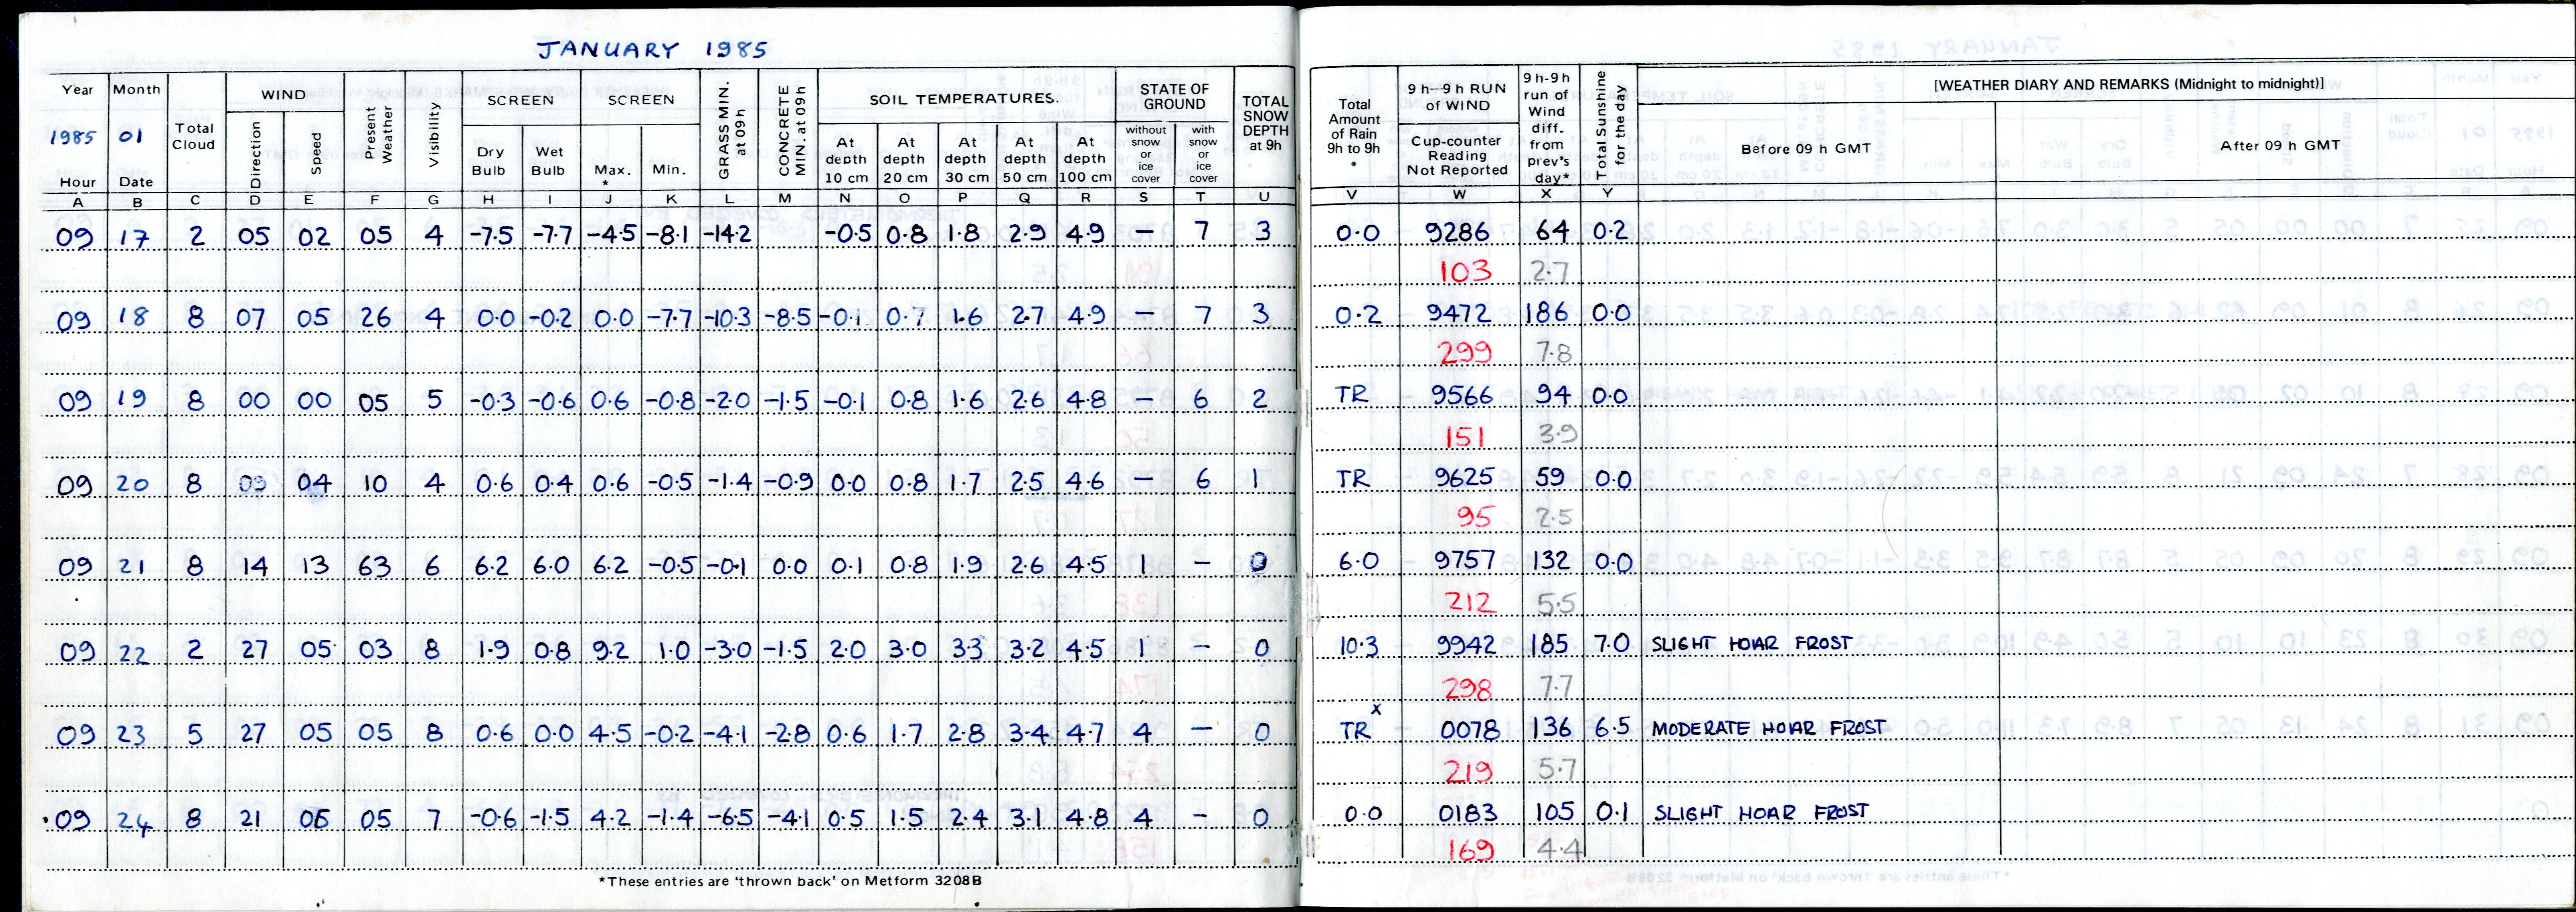 JANUARY 1985
Year Month Total Cloud WIND Present Weather Visibility SCREEN SCREEN GRASS MIN. at 09h CONCRETE MIN. at 09h SOIL TEMPERATURES. STATE OF GROUND TOTAL SNOW DEPTH at 9h Total Amount of Rain 9h to 9h * 9h—9h RUN of WIND 9h-9h run of Wind diff. from prev's day* Total Sunshine for the day [WEATHER DIARY AND REMARKS (Midnight to midnight)]
1985 01 Direction Speed Dry Bulb Wet Bulb Max. * Min. At depth 10 cm At depth 20 cm At depth 30 cm At depth 50 cm At depth 100 cm without snow or ice cover with snow or ice cover Cup-counter Reading Not Reported Before 09 h GMT After 09 h GMT
Hour Date
A B C D E F G H I J K L M N O P Q R S T U V W X Y
09 17 2 05 02 05 4 -7.5 -7.7 -4.5 -8.1 -14.2 -0.5 0.8 1.8 2.9 4.9 — 7 3 0.0 9286 64 0.2
103 2.7
09 18 8 07 05 26 4 0.0 -0.2 0.0 -7.7 -10.3 -8.5 -0.1 0.7 1.6 2.7 4.9 — 7 3 0.2 9472 186 0.0
299 7.8
09 19 8 00 00 05 5 -0.3 -0.6 0.6 -0.8 -2.0 -1.5 -0.1 0.8 1.6 2.6 4.8 — 6 2 TR 9566 94 0.0
151 3.9
09 20 8 04 10 4 0.6 0.4 0.6 -0.5 -1.4 -0.9 0.0 0.8 1.7 2.5 4.6 — 6 1 TR 9625 59 0.0
95 2.5
09 21 8 14 13 63 6 6.2 6.0 6.2 -0.5 -0.1 0.0 0.1 0.8 1.9 2.6 4.5 1 — 0 6.0 9757 132 0.0
212 5.5
09 22 2 27 05 03 8 1.9 0.8 9.2 1.0 -3.0 -1.5 2.0 3.0 3.3 3.2 4.5 1 — 0 10.3 9942 185 7.0 SLIGHT HOAR FROST
298 7.7
09 23 5 27 05 05 8 0.6 0.0 4.5 -0.2 -4.1 -2.8 0.6 1.7 2.8 3.4 4.7 4 — 0 TR x 0078 136 6.5 MODERATE HOAR FROST
219 5.7
09 24 8 21 05 7 -0.6 -1.5 4.2 -1.4 -6.5 -4.1 0.5 1.5 2.4 3.1 4.8 4 — 0 0.0 0183 105 0.1 SLIGHT HOAR FROST
169 4.4
*These entries are 'thrown back' on Metform 3208B